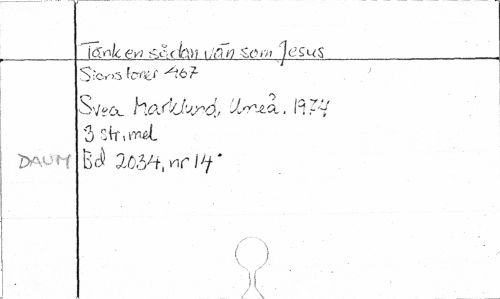 Tänk en sådan vän som Jesus
Sionstoner 467
Svea Marklund, Umeå. 1974
3 str, mel
DAUM Bd 2034, nr 14